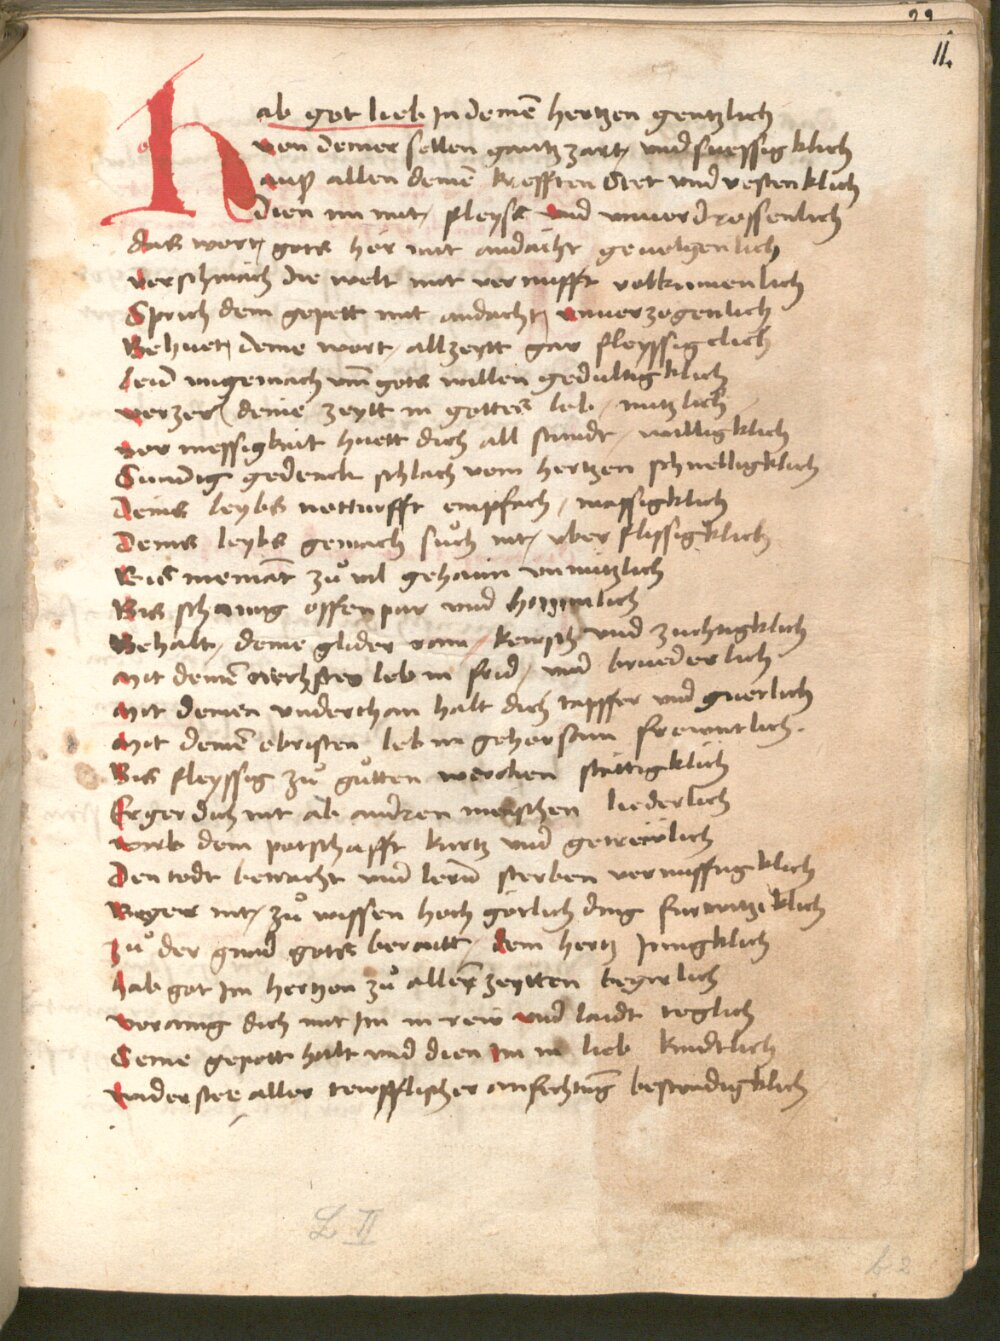 29
11.
Hab got lieb in deinē hertzen gentzlich
von deiner sellen gantz zart und fleyssigklich
auß allen deinē krefften stet und vestenklich
Dien im mit fleyss und unverdrossenlich
das wort gots hör mit andacht gevolgenlich
verschmäch die welt mit vernufft volkumenlich
Sprich dein gepett mit andacht unverzogenlich
Behuet deine wort allzeytt gar fleyssigclich
Leid ungemach um gots willen gedultigklich
verzer deine zeytt in gottes lob nutzlich
vor messigkait huett dich all stundt willigklich
Sundig gedenck schlach vom hertzen schnelligklich
Deins leybs notturfft empfach massigklich
Deins leybs gemach such nit uber flissigklich
Bis niemāt zů vil geheim unnützlich
Bis schamig offenpar und haymlich
Behalt deine glider rain keusch und zuchtigklich
Mit deinē leb in frid und bruederlich
Mit deinen underthan halt dich tapffer und guetlich
Mit deinē obristen leb in gehorsam frewntlich.
Bis fleyssig zů gůtten wercken stättigklich
Erger dich nit ab andren menschen liederlich
wirb dein potschafft kurtz und getrewlich
Den todt betracht und lern sterben vernuffftigklich
Beger nit zů wissen hoch götlich ding furwitziklich
Zů der gnad gots beraitt dein hertz Inngklich
hab got im hertzen zů allen zeytten begirlich
veraining dich mit im in rew und laidt teglich
Seine gepott halt und dien im in lieb kindtlich
widerstee aller tewfflischer anfechtūg bestendigklich
L II
b 2